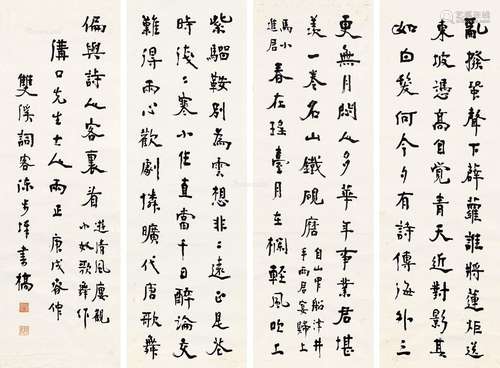 亂撥箏聲下薜蘿誰將蓮炬送
東坡憑高自覺青天近對影其
如白髮何今夕有詩傳海外三
更無月悶人多華年事業君堪
羨一卷名山鐵硯磨
馬小
進君
春在瑤臺月在輕風吹上
紫騮鞍別為雲想非〻遠正是花
時淺〻寒小住直當十日醉論交
難得兩心歡劇憐曠代唐歌舞
偏與詩人客裏看
遊清風廔觀
小奴歌舞作
溝口先生士人兩正
庚戌客作
雙溪詞客陳步墀書稿